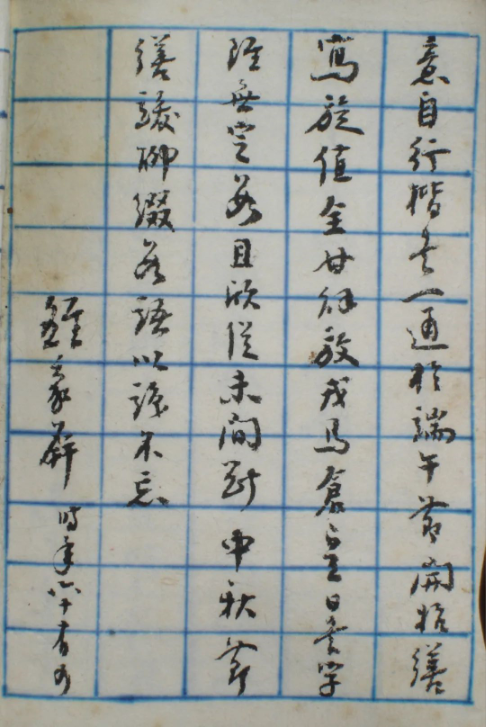 意自行楷書一通於端午前開始繕
寫旋值全甘解放戎馬倉皇日書字
跡無定若且欣從未間斷中秋節
繕竣聊綴數語以誌不忘
時年六十有